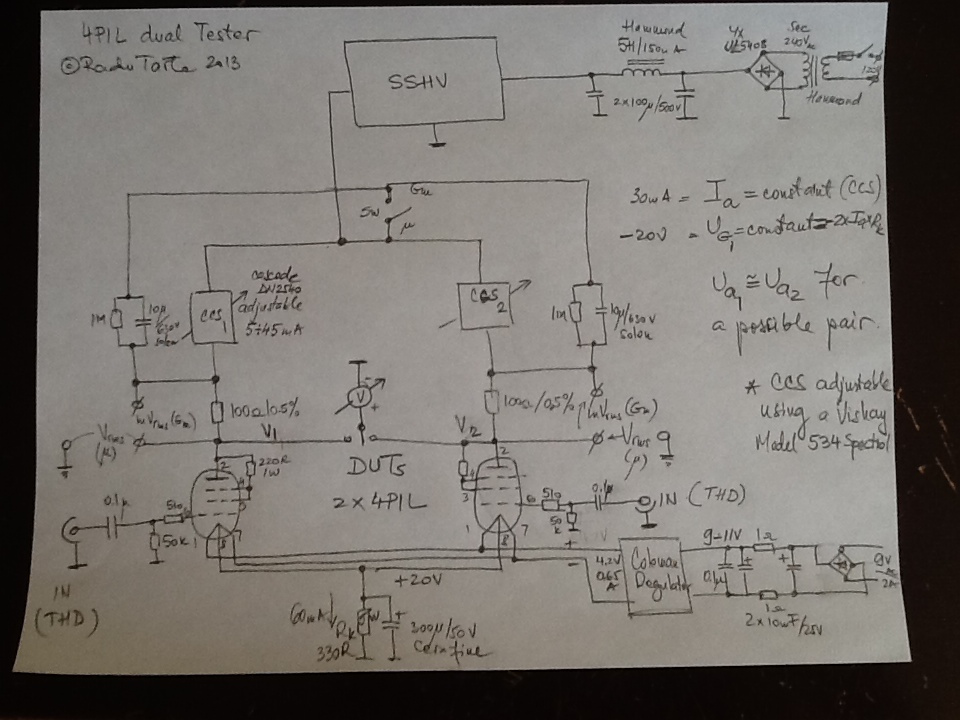 4P1L dual Tester
© Radu Tarta 2013
SSHV
Hammond
5H/150mA
2x100µ/500V
4x
UF5408
Sec
240Vac
Hammond
30mA = Ia = constant (CCS)
-20V = UG1 = constant = 2xIaxRk
Ua1 ≅ Ua2 for
a possible pair.
* CCS adjustable
using a Vishay
Model 534 Spectrol
Gm
SW
µ
cascode
DN2540
adjustable
5÷45mA
CCS1
CCS2
1M
10µ
630V
Solen
1M
10µ/630V
Solen
mVrms (Gm)
100Ω/0.5%
V1
V
+
V2
100Ω/0.5%
mVrms (Gm)
Vrms
(µ)
Vrms
(µ)
DUTs
2 x 4P1L
220R
1W
0.1µ
510
50k
IN
(THD)
2
1
8
7
2
3
6
1
8
7
510
50
k
0.1µ
IN (THD)
+
4.2V
0.65
A
Coleman
Regulator
9-11V
0.1µ
+
1Ω
+
1Ω
2x10mF/25V
9V
ac
2A
+20V
60mA
Rk
330R
5W
+
300µ/50V
Cerafine